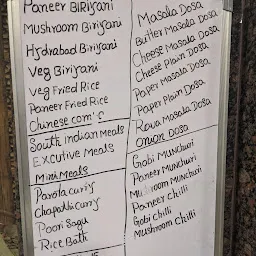 Paneer BiRiyani
Mushroom Biriyani
Hydrabad Biriyani
Veg Biriyani
Veg Fried Rice
Paneer Fried Rice
Chinese
South Indian Meals
Excutive Meals
Mini Meals
Parota curry
Chapathi curry
Poori Sagu
Rice Bath
Masala Dosa
Butter Masala Dosa
Cheese Masala Dosa
Cheese Plain Dosa
Paper Masala Dosa
Paper Plain Dosa
Rava Masala Dosa
Onion Dosa
Gobi Munchuri
Paneer Munchuri
Mushroom Munchuri
Paneer chilli
Gobi chilli
Mushroom chilli